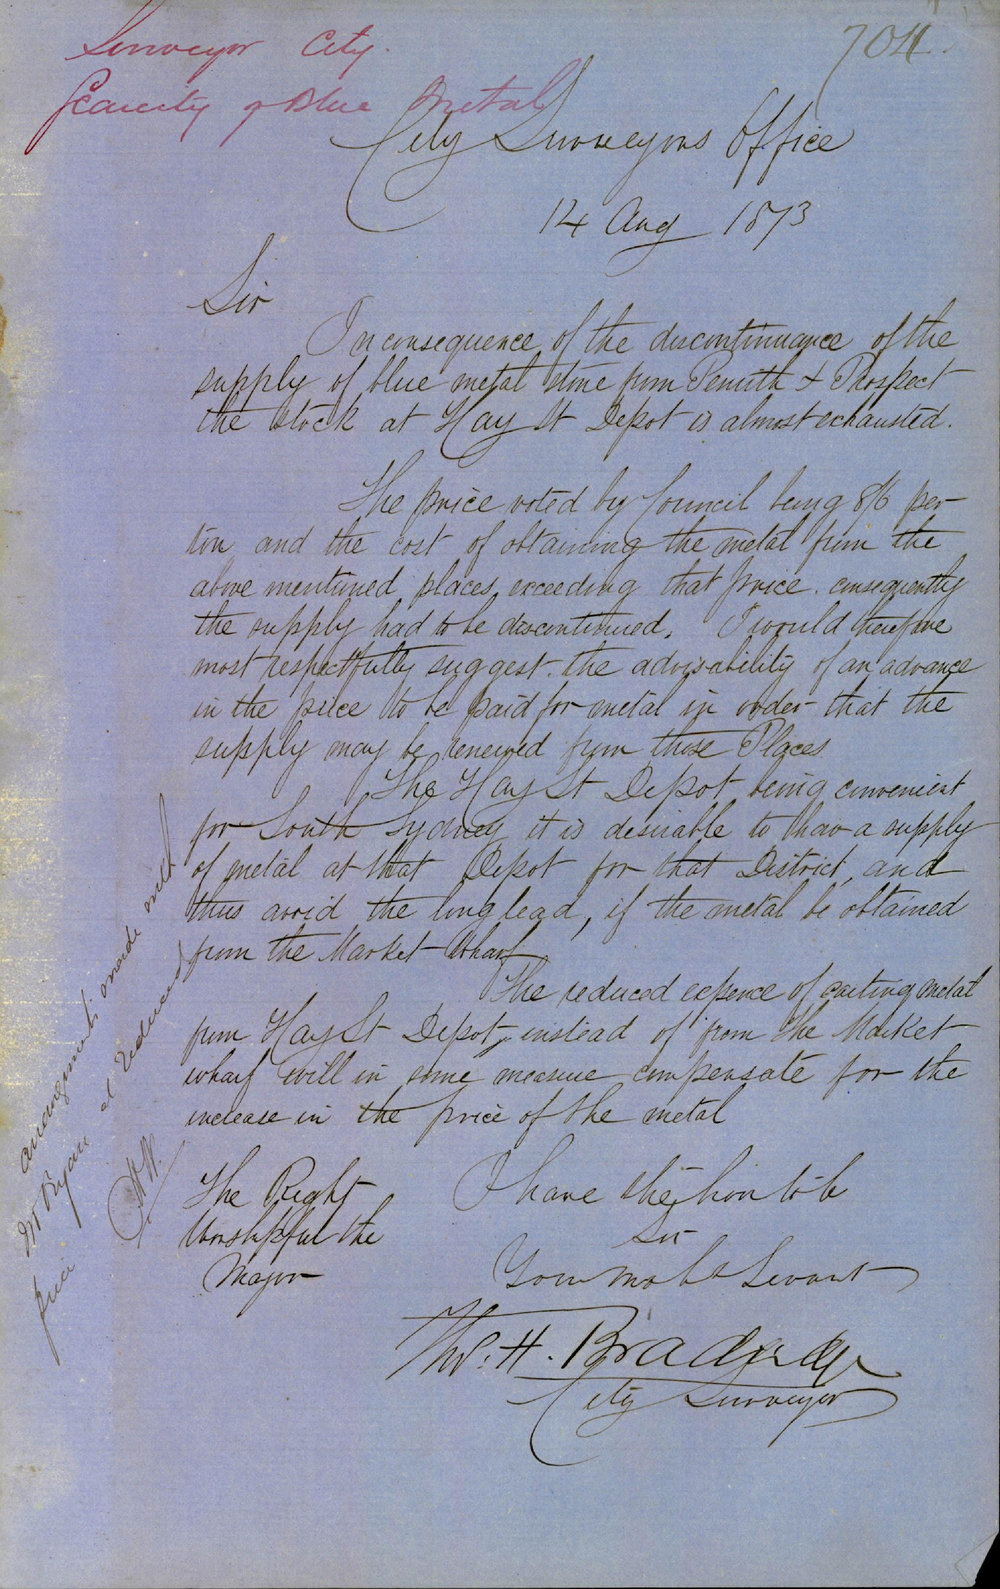 Surveyor City.
Scarcity of Blue Metal
704
City Surveyors Office
14 Aug 1873
Sir
In consequence of the discontinuance of the
supply of blue metal stone from Penrith & Prospect
the stock at Hay St Depot is almost exhausted.
The price voted by Council being 8/6 per
ton, and the cost of obtaining the metal from the
above mentioned places, exceeding that price. consequently
the supply had to be discontinued. I would therefore
most respectfully suggest the advisability of an advance
in the price to be paid for metal in order that the
supply may be renewed from those Places
The Hay St Depot being convenient
for South Sydney it is desirable to have a supply
of metal at that Depot for that District, and
thus avoid the long lead, if the metal be obtained
from the Market Wharf
The reduced expence of carting metal
from Hay St Depot, instead of from the Market
wharf will in some measure compensate for the
increase in the price of the metal
I have the hon to be
Sir
Your mo bt Servant
Thos. H. Bradridge
City Surveyor
The Right
Worshipful the
Mayor
arrangements made with
Mr Ryan at reduced
price